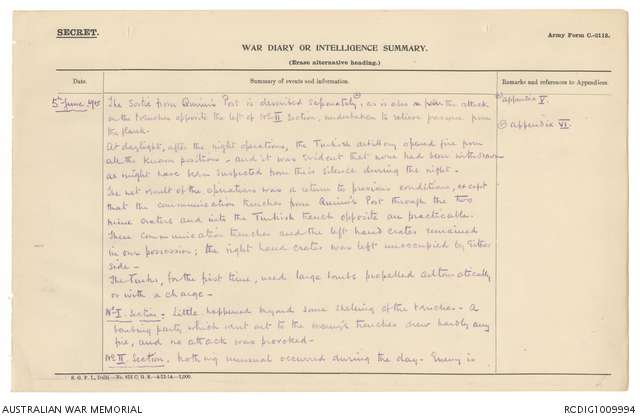 SECRET.
Army Form C.-2118.
WAR DIARY OR INTELLIGENCE SUMMARY.
(Erase alternative heading.)
Date.
Summary of events and information.
Remarks and references to Appendices.
5th June 1915
The Sortie from Quinn's Post is described separately, as is also the attack
on the trenches opposite the left of No II Section, undertaken to relieve pressure from
the flank.
At daylight, after the night operations, the Turkish artillery opened fire from
all the known positions - and it was evident that none had been withdrawn
as might have been suspected from their silence during the night -
The net result of the operations was a return to previous conditions, except
that the communication trenches from Quinn's Post through the two
mine craters and into the Turkish trench opposite are practicable.
These communication trenches and the left hand crater remained
in our possession; the right hand crater was left unoccupied by either
side -
The Turks, for the first time, used large bombs propelled automatically
or with a charge -
No I Section. Little happened beyond some shelling of the trenches - A
bombing party which went out to the enemy's trenches drew hardly any
fire, and no attack was provoked -
No II Section. Nothing unusual occurred during the day. Enemy is
appendix V.
appendix VI.
AUSTRALIAN WAR MEMORIAL
RCDIG1009994